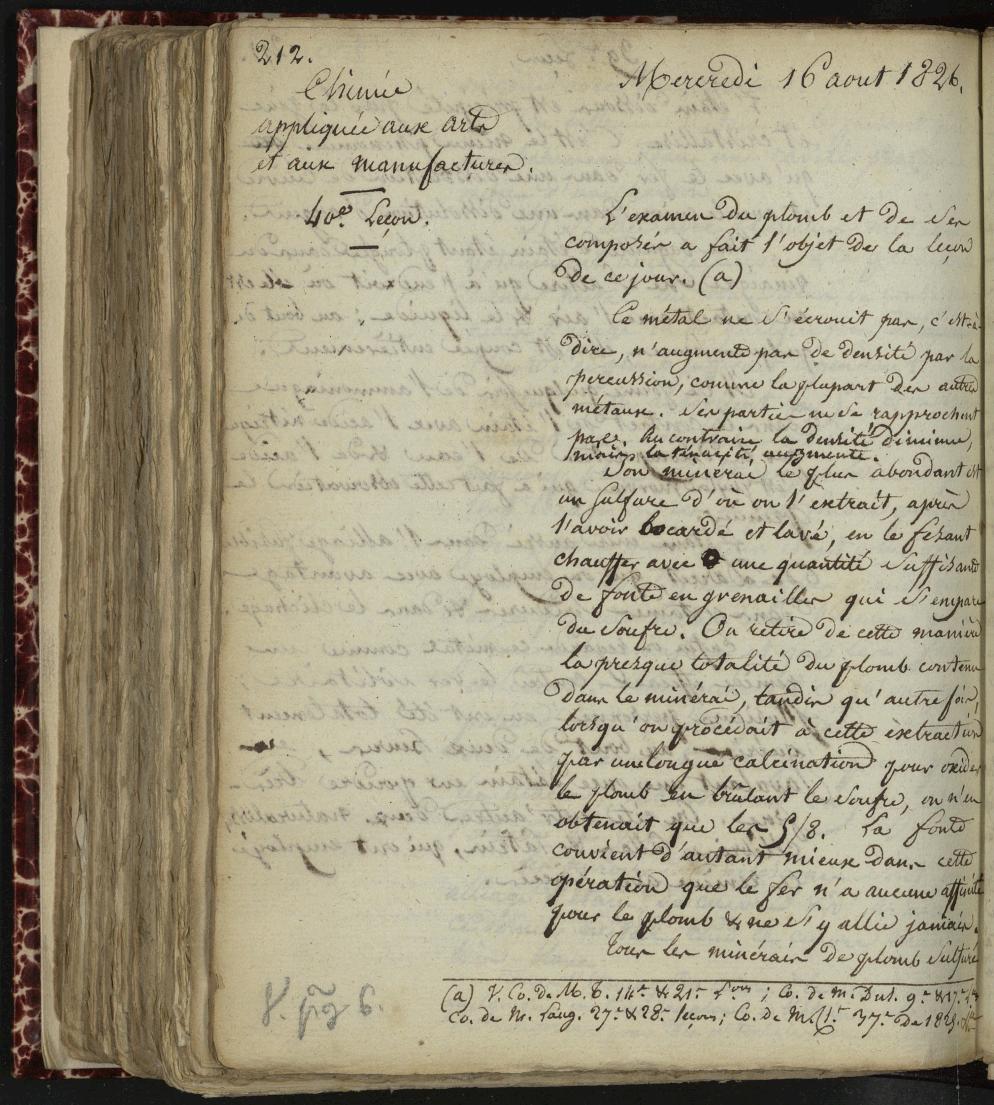 212.
Mercredi 16 aout 1826.
Chimie
appliquée aux arts
et aux manufactures.
40e. Leçon.
L'examen du plomb et de ses
composés a fait l'objet de la leçon
de ce jour. (a)
Ce métal ne s'écrouit pas, c'est-à-
dire, n'augmente pas de densité par la
percussion, comme la plupart des autres
métaux. Ses parties ne se rapprochent
pas. Au contraire la densité diminue,
mais la tenacité augmente.
Son minérai le plus abondant est
un sulfure d'où on l'extrait, après
l'avoir bocardé et lavé, en le fesant
chauffer avec une quantité suffisante
de fonte en grenailles qui s'empare
du soufre. On retire de cette manière
la presque totalité du plomb contenu
dans le minérai, tandis qu'autrefois,
lorsqu'on procédait à cette extraction
par une longue calcination pour oxider
le plomb en brûlant le soufre, on n'en
obtenait que les 5/8. La fonte
convient d'autant mieux dans cette
opération que le fer n'a aucune affinité
pour le plomb & ne s'y allie jamais.
Tous les minérais de plomb sulfuré
(a) V. Co. de M. T. 14e & 21e Lons; Co. de M. Dul. 9e & 17e
Co. de M. Laug. 27e & 28e leçons; Co. de M. 37e de 1825.